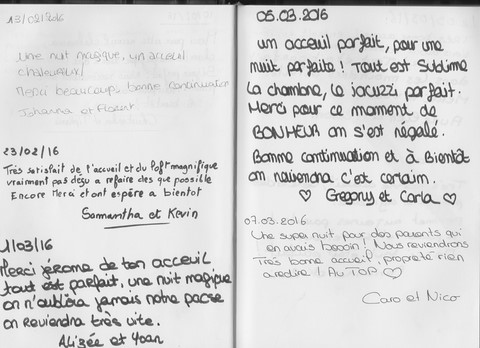 13/02/2016
Une nuit magique, un acceuil
chaleureux!
Merci beaucoup, bonne continuation
Johanna et Florent
23/02/16
Très satisfait de l'accueil et du loft magnifique
vraiment pas déçu a refaire des que possible
Encore Merci et ont espère a bientot
Samantha et Kevin
1/03/16
Merci jérome de ton acceuil
tout est parfait, une nuit magique
on n'oubliera jamais notre passe
on Reviendra très vite.
Alizée et Yoan
05.03.2016
un acceuil parfait, pour une
nuit parfaite! Tout est Sublime
la chambre, le jacuzzi parfait.
Merci pour ce moment de
BONHEUR on s'est régalé.
Bonne continuation et à Bientôt
on reviendra c'est certain.
♡ Gregory et Carla ♡
07.03.2016
Une super nuit pour des parents qui
en avais besoin! Nous reviendrons
Très bonne accueil, propreté rien
a redire! Au TOP ♡
Caro et Nico